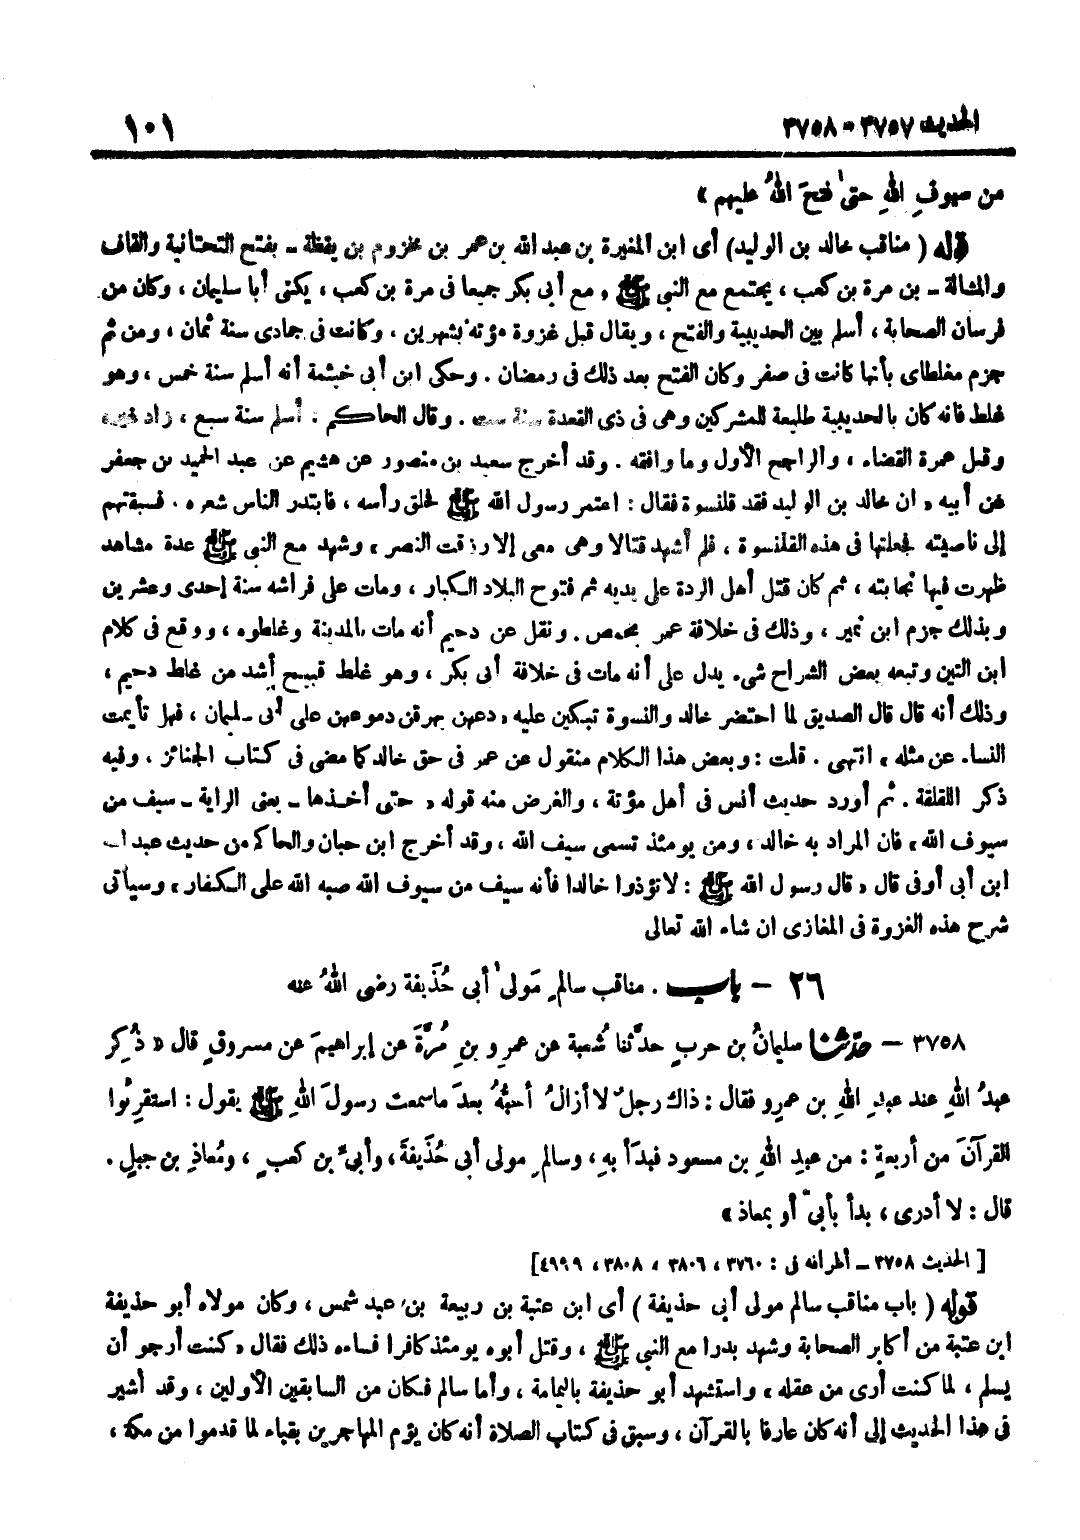 الحديث ٣٧٥٧ - ٣٧٥٨ ١٠١
من سيوفِ اللهِ حتىٰ فتحَ اللهُ عليهم »
قوله ( مناقب خالد بن الوليد ) أى ابن المغيرة بن عبد الله بن عمر بن مخزوم بن يقظة ـ بفتح التحتانية والقاف
والمشالة ـ بن مرة بن كعب ، يجتمع مع النبي ﷺ ومع أبى بكر جميعا فى مرة بن كعب ، يكنى أبا سليمان ، وكان من
فرسان الصحابة ، أسلم بين الحديبية والفتح ، ويقال قبل غزوة مؤتة بشهرين ، وكانت فى جمادى سنة ثمان ، ومن ثم
جزم مغلطاى بأنها كانت فى صفر وكان الفتح بعد ذلك فى رمضان . وحكى ابن أبى خيثمة أنه أسلم سنة خمس ، وهو
غلط فانه كان بالحديبية طليعة للمشركين وهى فى ذى القعدة سنة ست . وقال الحاكم : أسلم سنة سبع ، زاد غيره
وقبل عمرة القضاء ، والراجح الأول وما وافقه . وقد أخرج سعيد بن منصور عن هشيم عن عبد الحميد بن جعفر
عن أبيه « ان خالد بن الوليد فقد قلنسوة فقال : اعتمر رسول الله ﷺ لحلق رأسه ، فابتدر الناس شعره . فسبقتهم
إلى ناصيته فجعلتها فى هذه القلنسوة ، فلم أشهد قتالا وهى معى إلا رزقت النصر » وشهد مع النبي ﷺ عدة مشاهد
ظهرت فيها نجابته ، ثم كان قتل أهل الردة على يديه ثم فتوح البلاد الكبار ، ومات على فراشه سنة إحدى وعشرين
وبذلك جزم ابن نمير ، وذلك فى خلافة عمر بحمص . ونقل عن دحيم أنه مات بالمدينة وغلطوه ، ووقع فى كلام
ابن التين وتبعه بعض الشراح شىء يدل على أنه مات فى خلافة أبى بكر ، وهو غلط قبيح أشد من غلط دحيم ،
وذلك أنه قال قال الصديق لما احتضر خالد والنسوة تبكين عليه « دعهن يهرقن دموعهن على أبى سليمان ، فهل تأيمت
النساء عن مثله » انتهى . قلت : وبعض هذا الكلام منقول عن عمر فى حق خالد كما مضى فى كتاب الجنائز ، وفيه
ذكر اللقلقة . ثم أورد حديث أنس فى أهل مؤتة ، والغرض منه قوله « حتى أخذها ـ يعنى الراية ـ سيف من
سيوف الله » فان المراد به خالد ، ومن يومئذ تسمى سيف الله ، وقد أخرج ابن حبان والحاكم من حديث عبد الله
ابن أبى أوفى قال « قال رسول الله ﷺ : لا تؤذوا خالدا فأنه سيف من سيوف الله صبه الله على الكفار » وسيأتى
شرح هذه الغزوة فى المغازى ان شاء الله تعالى
٢٦ - باب . مناقب سالمٍ مَولىٰ أبى حُذَيفة رضى اللهُ عنه
٣٧٥٨ - حدّثنا سليمانُ بن حرب حدَّثنا شُعبة عن عمرِو بنِ مُرَّةَ عن إبراهيمَ عن مسروقٍ قال « ذُكِر
عبدُ اللهِ عند عبدِ اللهِ بن عمرٍو فقال : ذاك رجلٌ لا أزالُ أحبُّهُ بعدَ ما سمعت رسولَ اللهِ ﷺ يقول : استقرِئوا
القرآنَ من أربعةٍ : من عبدِ اللهِ بن مسعود فبدَأ بهِ ، وسالمٍ مولى أبى حُذَيفةَ ، وأبىِّ بن كعبٍ ، ومُعاذِ بن جبلٍ .
قال : لا أدرى ، بدأ بأبىّ أو بمعاذ »
[ الحديث ٣٧٥٨ ـ أطرافه فى : ٣٧٦٠ ، ٣٨٠٦ ، ٣٨٠٨ ، ٤٩٩٩]
قوله ( باب مناقب سالم مولى أبى حذيفة ) أى ابن عتبة بن ربيعة بن عبد شمس ، وكان مولاه أبو حذيفة
ابن عتبة من أكابر الصحابة وشهد بدرا مع النبي ﷺ ، وقتل أبوه يومئذ كافرا فساءه ذلك فقال « كنت أرجو أن
يسلم ، لما كنت أرى من عقله » واستشهد أبو حذيفة باليمامة ، وأما سالم فكان من السابقين الأولين ، وقد أشير
فى هذا الحديث إلى أنه كان عارفا بالقرآن ، وسبق فى كتاب الصلاة أنه كان يؤم المهاجرين بقباء لما قدموا من مكة ،